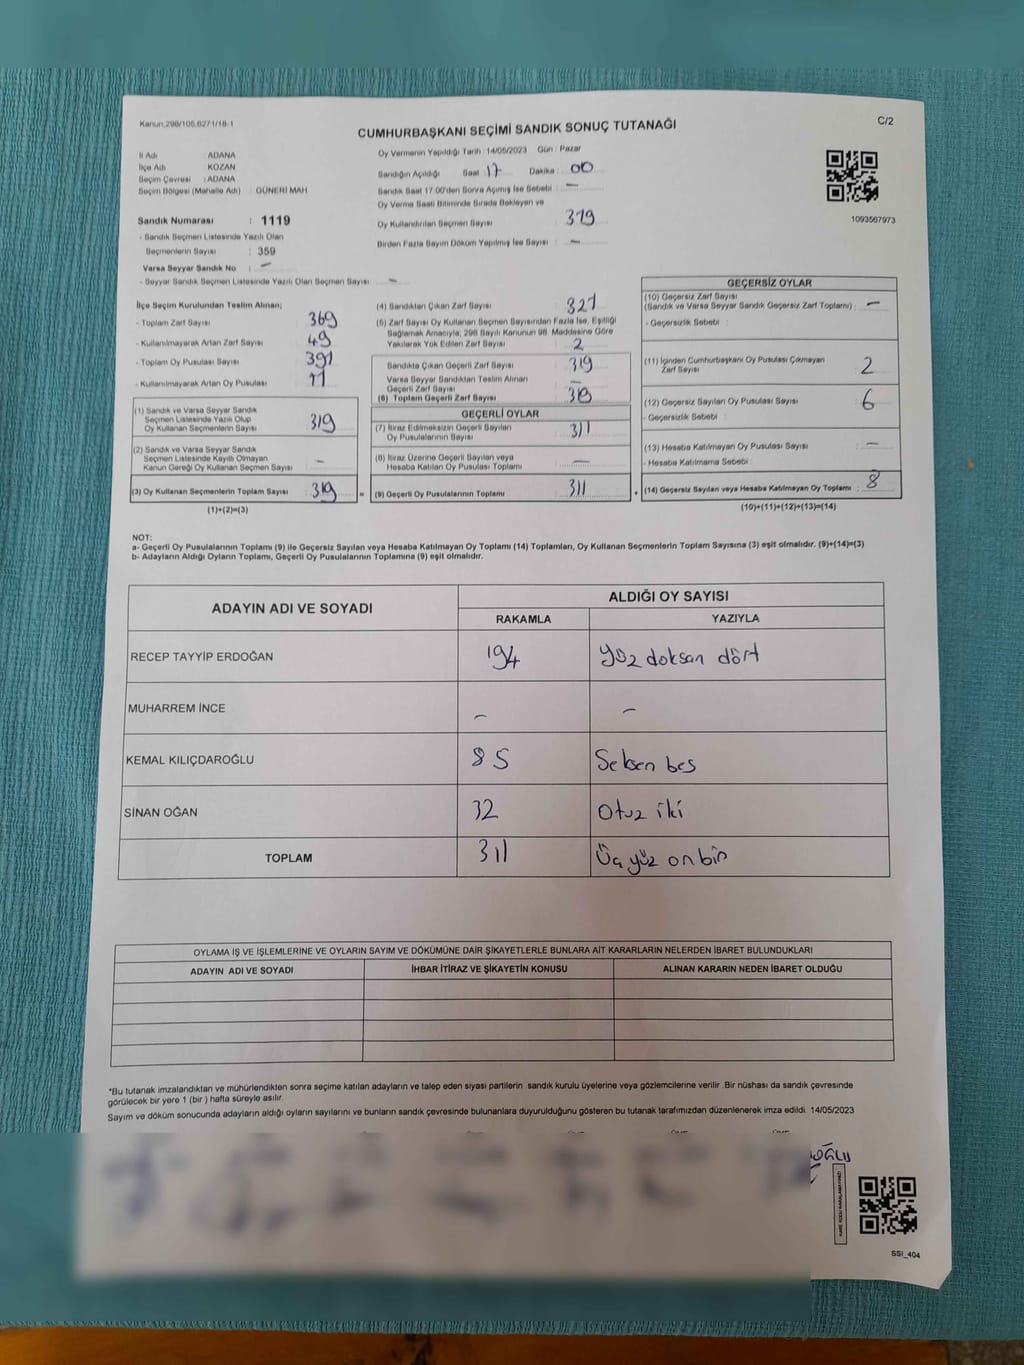 Kanun:298/105.6271/18-1
C/2
CUMHURBAŞKANI SEÇİMİ SANDIK SONUÇ TUTANAĞI
İl Adı : ADANA
İlçe Adı : KOZAN
Seçim Çevresi : ADANA
Seçim Bölgesi (Mahalle Adı) : GÜNERİ MAH
Sandık Numarası : 1119
- Sandık Seçmen Listesinde Yazılı Olan
Seçmenlerin Sayısı : 359
Varsa Seyyar Sandık No : –
- Seyyar Sandık Seçmen Listesinde Yazılı Olan Seçmen Sayısı : –
Oy Vermenin Yapıldığı Tarih : 14/05/2023 Gün : Pazar
Sandığın Açıldığı Saat 17 Dakika : 00
Sandık Saat 17:00'den Sonra Açımış İse Sebebi : –
Oy Verme Saati Bitiminde Sırada Bekleyen ve
Oy Kullandırılan Seçmen Sayısı : 319
Birden Fazla Sayım Döküm Yapılmış İse Sayısı : –
1093567973
İlçe Seçim Kurulundan Teslim Alınan;
- Toplam Zarf Sayısı : 369
- Kullanılmayarak Artan Zarf Sayısı : 49
- Toplam Oy Pusulası Sayısı : 391
- Kullanılmayarak Artan Oy Pusulası : 11
(1) Sandık ve Varsa Seyyar Sandık
Seçmen Listesinde Yazılı Olup
Oy Kullanan Seçmenlerin Sayısı : 319
(2) Sandık ve Varsa Seyyar Sandık
Seçmen Listesinde Kayıtlı Olmayan
Kanun Gereği Oy Kullanan Seçmen Sayısı : –
(3) Oy Kullanan Seçmenlerin Toplam Sayısı : 319 =
(1)+(2)=(3)
(4) Sandıktan Çıkan Zarf Sayısı : 321
(5) Zarf Sayısı Oy Kullanan Seçmen Sayısından Fazla İse, Eşitliği
Sağlamak Amacıyla; 298 Sayılı Kanunun 98. Maddesine Göre
Yakılarak Yok Edilen Zarf Sayısı : 2
Sandıkta Çıkan Geçerli Zarf Sayısı : 319
Varsa Seyyar Sandıktan Teslim Alınan
Geçerli Zarf Sayısı : –
(6) Toplam Geçerli Zarf Sayısı : 319
GEÇERLİ OYLAR
(7) İtiraz Edilmeksizin Geçerli Sayılan
Oy Pusulalarının Sayısı : 311
(8) İtiraz Üzerine Geçerli Sayılan veya
Hesaba Katılan Oy Pusulası Toplamı : –
(9) Geçerli Oy Pusulalarının Toplamı : 311 +
GEÇERSİZ OYLAR
(10) Geçersiz Zarf Sayısı
(Sandık ve Varsa Seyyar Sandık Geçersiz Zarf Toplamı) : –
- Geçersizlik Sebebi :
(11) İçinden Cumhurbaşkanı Oy Pusulası Çıkmayan
Zarf Sayısı : 2
(12) Geçersiz Sayılan Oy Pusulası Sayısı : 6
- Geçersizlik Sebebi :
(13) Hesaba Katılmayan Oy Pusulası Sayısı : –
- Hesaba Katılmama Sebebi :
(14) Geçersiz Sayılan veya Hesaba Katılmayan Oy Toplamı : 8
(10)+(11)+(12)+(13)=(14)
NOT:
a- Geçerli Oy Pusulalarının Toplamı (9) ile Geçersiz Sayılan veya Hesaba Katılmayan Oy Toplamı (14) Toplamları, Oy Kullanan Seçmenlerin Toplam Sayısına (3) eşit olmalıdır. (9)+(14)=(3)
b- Adayların Aldığı Oyların Toplamı, Geçerli Oy Pusulalarının Toplamına (9) eşit olmalıdır.
ADAYIN ADI VE SOYADI ALDIĞI OY SAYISI
RAKAMLA YAZIYLA
RECEP TAYYİP ERDOĞAN 194 Yüz doksan dört
MUHARREM İNCE – –
KEMAL KILIÇDAROĞLU 85 Seksen beş
SİNAN OĞAN 32 Otuz iki
TOPLAM 311 Üç yüz on bir
OYLAMA İŞ VE İŞLEMLERİNE VE OYLARIN SAYIM VE DÖKÜMÜNE DAİR ŞİKAYETLERLE BUNLARA AİT KARARLARIN NELERDEN İBARET BULUNDUKLARI
ADAYIN ADI VE SOYADI İHBAR İTİRAZ VE ŞİKAYETİN KONUSU ALINAN KARARIN NEDEN İBARET OLDUĞU
*Bu tutanak imzalandıktan ve mühürlendikten sonra seçime katılan adayların ve talep eden siyasi partilerin sandık kurulu üyelerine veya gözlemcilerine verilir .Bir nüshası da sandık çevresinde
görülecek bir yere 1 (bir ) hafta süreyle asılır.
Sayım ve döküm sonucunda adayların aldığı oyların sayılarını ve bunların sandık çevresinde bulunanlara duyurulduğunu gösteren bu tutanak tarafımızdan düzenlenerek imza edildi. 14/05/2023
SSI_404